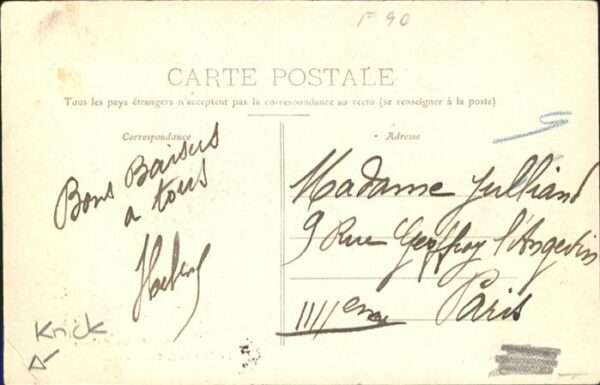 F 90
CARTE POSTALE
Tous les pays étrangers n'acceptent pas la correspondance au recto (se renseigner à la poste)
Correspondance
Adresse
Bons Baisers
a tous
Madame Julliand
9 Rue Geoffroy l'Angevin
IIII eme Paris
Krick